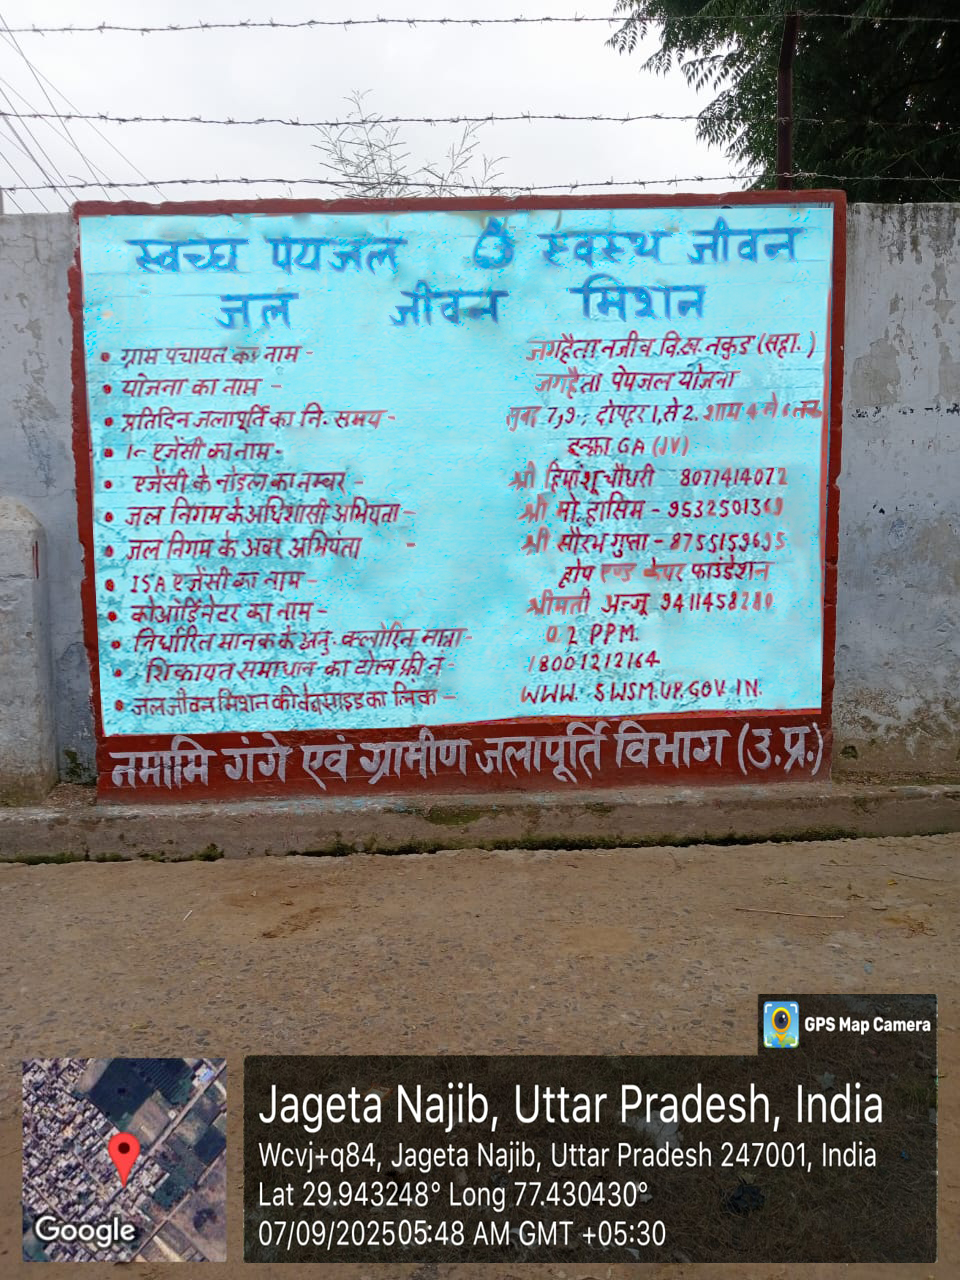 स्वच्छ पेयजल स्वस्थ जीवन
जल जीवन मिशन
• ग्राम पंचायत का नाम - जगहैता नजीब वि.ख. नकुड (सहा.)
• योजना का नाम - जगहैता पेयजल योजना
• प्रतिदिन जलापूर्ति का नि. समय - सुबह 7,9, दोपहर 1, से 2. शाम 4 से 6 तक
• एजेंसी का नाम - इन्फ्रा GA (JV)
• एजेंसी के नोडल का नम्बर - श्री हिमांशू चौधरी 8077414072
• जल निगम के अधिशासी अभियंता - श्री मो. हासिम -
• जल निगम के अवर अभियंता - श्री सौरभ गुप्ता -
• ISA एजेंसी का नाम - होप एण्ड केयर फाउंडेशन
• कोआर्डिनेटर का नाम - श्रीमती अन्जू 9411458280
• निर्धारित मानक के अनु. क्लोरिन मात्रा - 0.2 PPM.
• शिकायत समाधान का टोल फ्री न - 18001212164
• जल जीवन मिशन की वेबसाइड का लिंक - WWW. SWSM.UP.GOV.IN.
नमामि गंगे एवं ग्रामीण जलापूर्ति विभाग (उ.प्र.)
GPS Map Camera
Jageta Najib, Uttar Pradesh, India
Wcvj+q84, Jageta Najib, Uttar Pradesh 247001, India
Lat 29.943248° Long 77.430430°
07/09/202505:48 AM GMT +05:30
Google